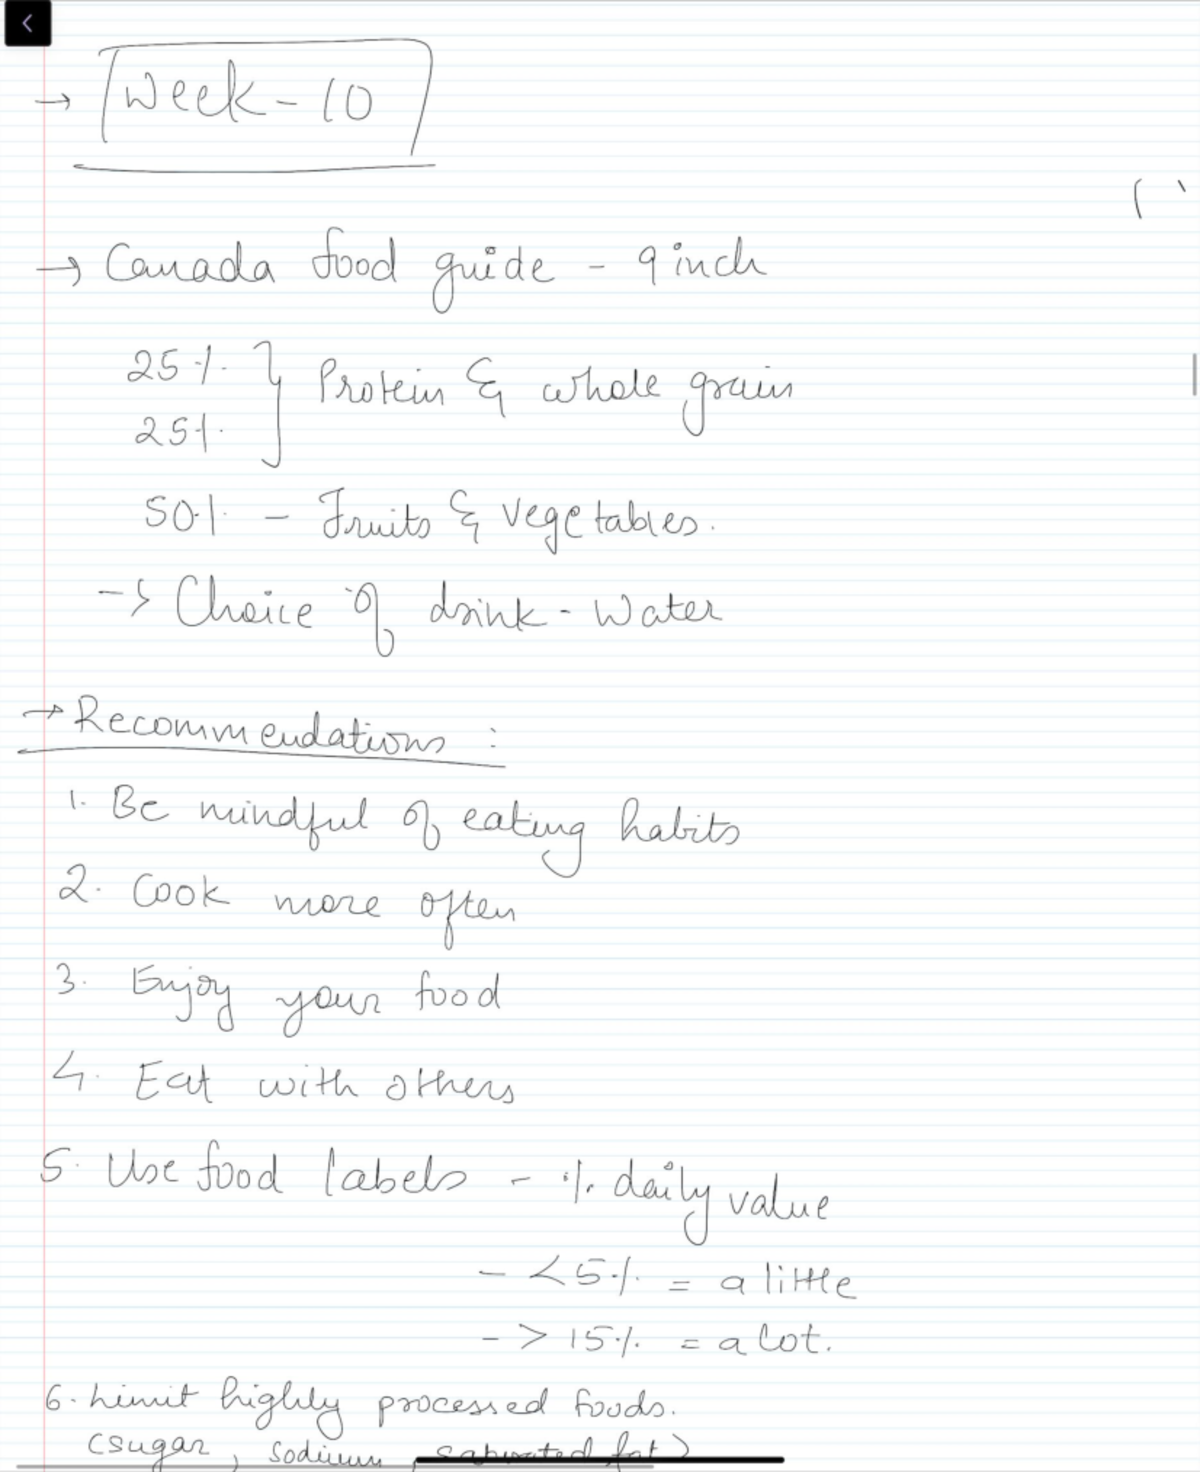 → Week - 10
→ Canada food guide - 9 inch
25%
25% } Protein & whole grain
50% - Fruits & vegetables.
-> Choice of drink - Water
→ Recommendations :
1. Be mindful of eating habits
2. Cook more often
3. Enjoy your food
4. Eat with others
5. Use food labels - % daily value
- <5% = a little
- > 15% = a lot.
6. Limit highly processed foods.
(sugar, sodium, saturated fat)